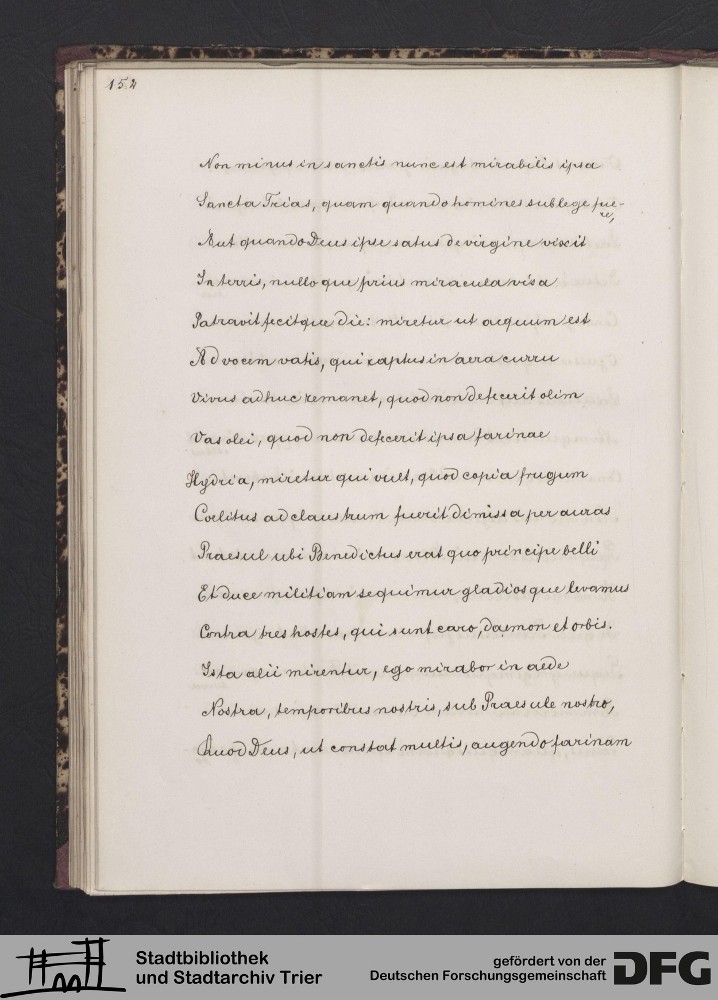 152
Non minus in sanctis nunc est mirabilis ipsa
Sancta Trias, quam quando homines sub lege fue-
re,
Aut quando Deus ipse satus de virgine vixit
In terris, nulloque prius miracula visa
Patravit fecitque die: miretur ut aequum est
Ad vocem vatis, qui raptus in aera curru
Vivus adhuc remanet, quod non defecerit olim
Vas olei, quod non defecerit ipsa farinae
Hydria, miretur qui vult, quod copia frugum
Coelitus ad claustrum fuerit dimissa per auras
Praesul ubi Benedictus erat quo principe belli
Et duce militiam sequimur gladiosque levamus
Contra tres hostes, qui sunt caro, daemon et orbis.
Ista alii mirentur, ego mirabor in aede
Nostra, temporibus nostris, sub Praesule nostro,
Quod Deus, ut constat multis, augendo farinam
Stadtbibliothek
und Stadtarchiv Trier
gefördert von der
Deutschen Forschungsgemeinschaft
DFG